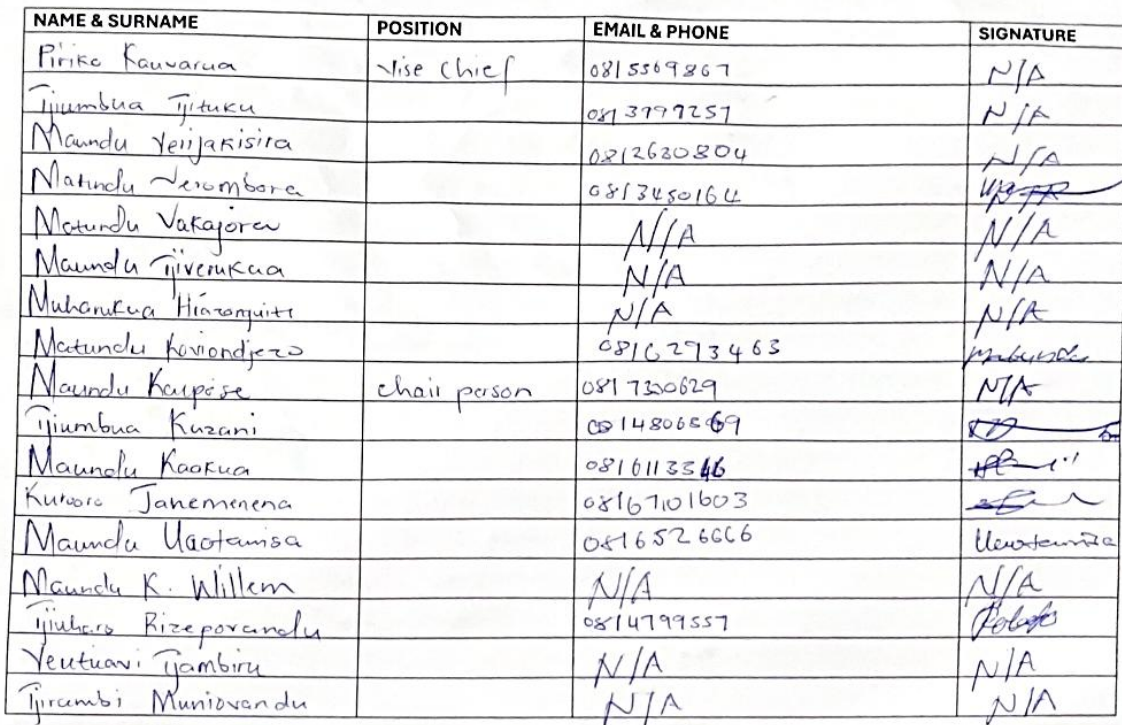 NAME & SURNAME POSITION EMAIL & PHONE SIGNATURE
Piriko Kauvarua Vise Chief 0815569867 N/A
Tjiumbua Tjituku 0813799257 N/A
Maundu Verijakisira 0812630804 N/A
Matundu Verombora 0813450164
Matundu Vakajorev N/A N/A
Maundu Tjiverukua N/A N/A
Muharukua Hiazanguiti N/A N/A
Matundu Koviondjezo 0816293463 Matundu
Maundu Karpose chair person 0817300629 N/A
Tjiumbua Kuzani
Maundu Kaokua 0816113346
Janemenena 0816701603
Maundu Uaotamisa 0816526666 Uaotamisa
Maundu K. Willem N/A N/A
Tjiuharo Rizeporandu 0814799557
Veutuavi Tjambiru N/A N/A
Tjirambi Muniovandu N/A N/A